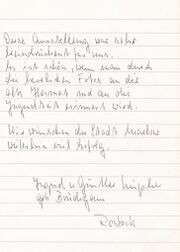 Diese Ausstellung war sehr
beeindruckend für uns.
Es ist schön, wenn man durch
die herrlichen Fotos an die
alte Heimat und an die
Jugendzeit erinnert wird.
Wir wünschen der Stadt
weiterhin viel Erfolg.
Ingrid u. Günther
geb.
Rostock